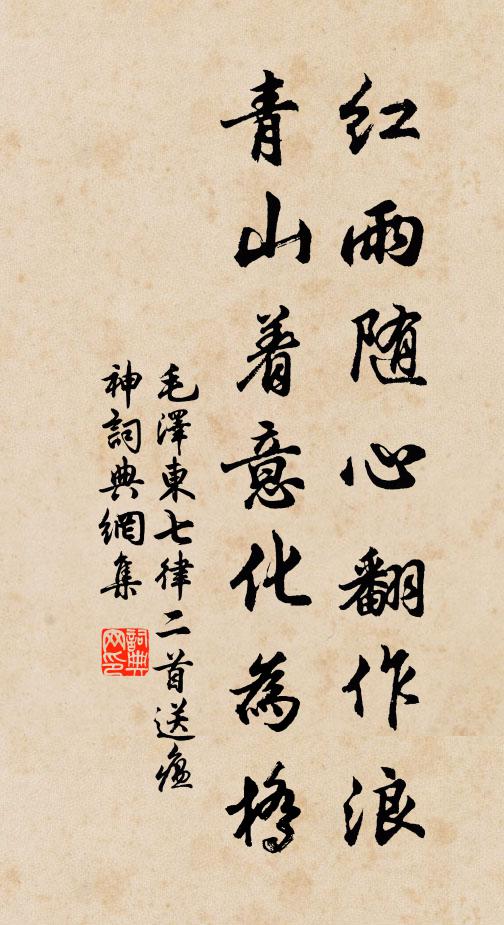 红雨随心翻作浪
青山着意化為橋
毛澤東七律二首送瘟
神詞典網集
詞典网印